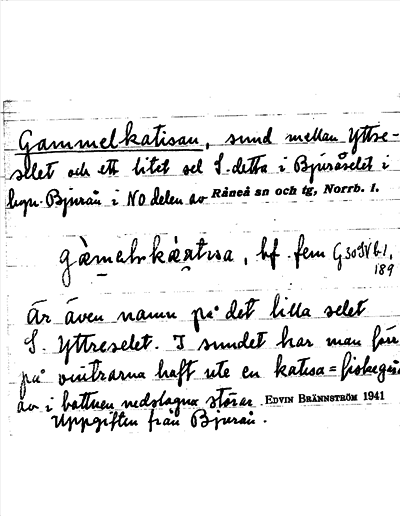 Gammelkatisan, sund mellan Yttre-
selet och ett litet sel S. detta i Bjuråselet i
bryn. Bjurån i NO delen av Råneå sn och tg, Norrb. l.
bf. fem G30 IV b. 1,
189
Är även namn på det lilla selet
S. Yttreselet. I sundet har man förr
på vintrarna haft ute en katisa = fiskegård
av i bottnen nedslagna störar. EDVIN BRÄNNSTRÖM 1941
Uppgiften från Bjurån.